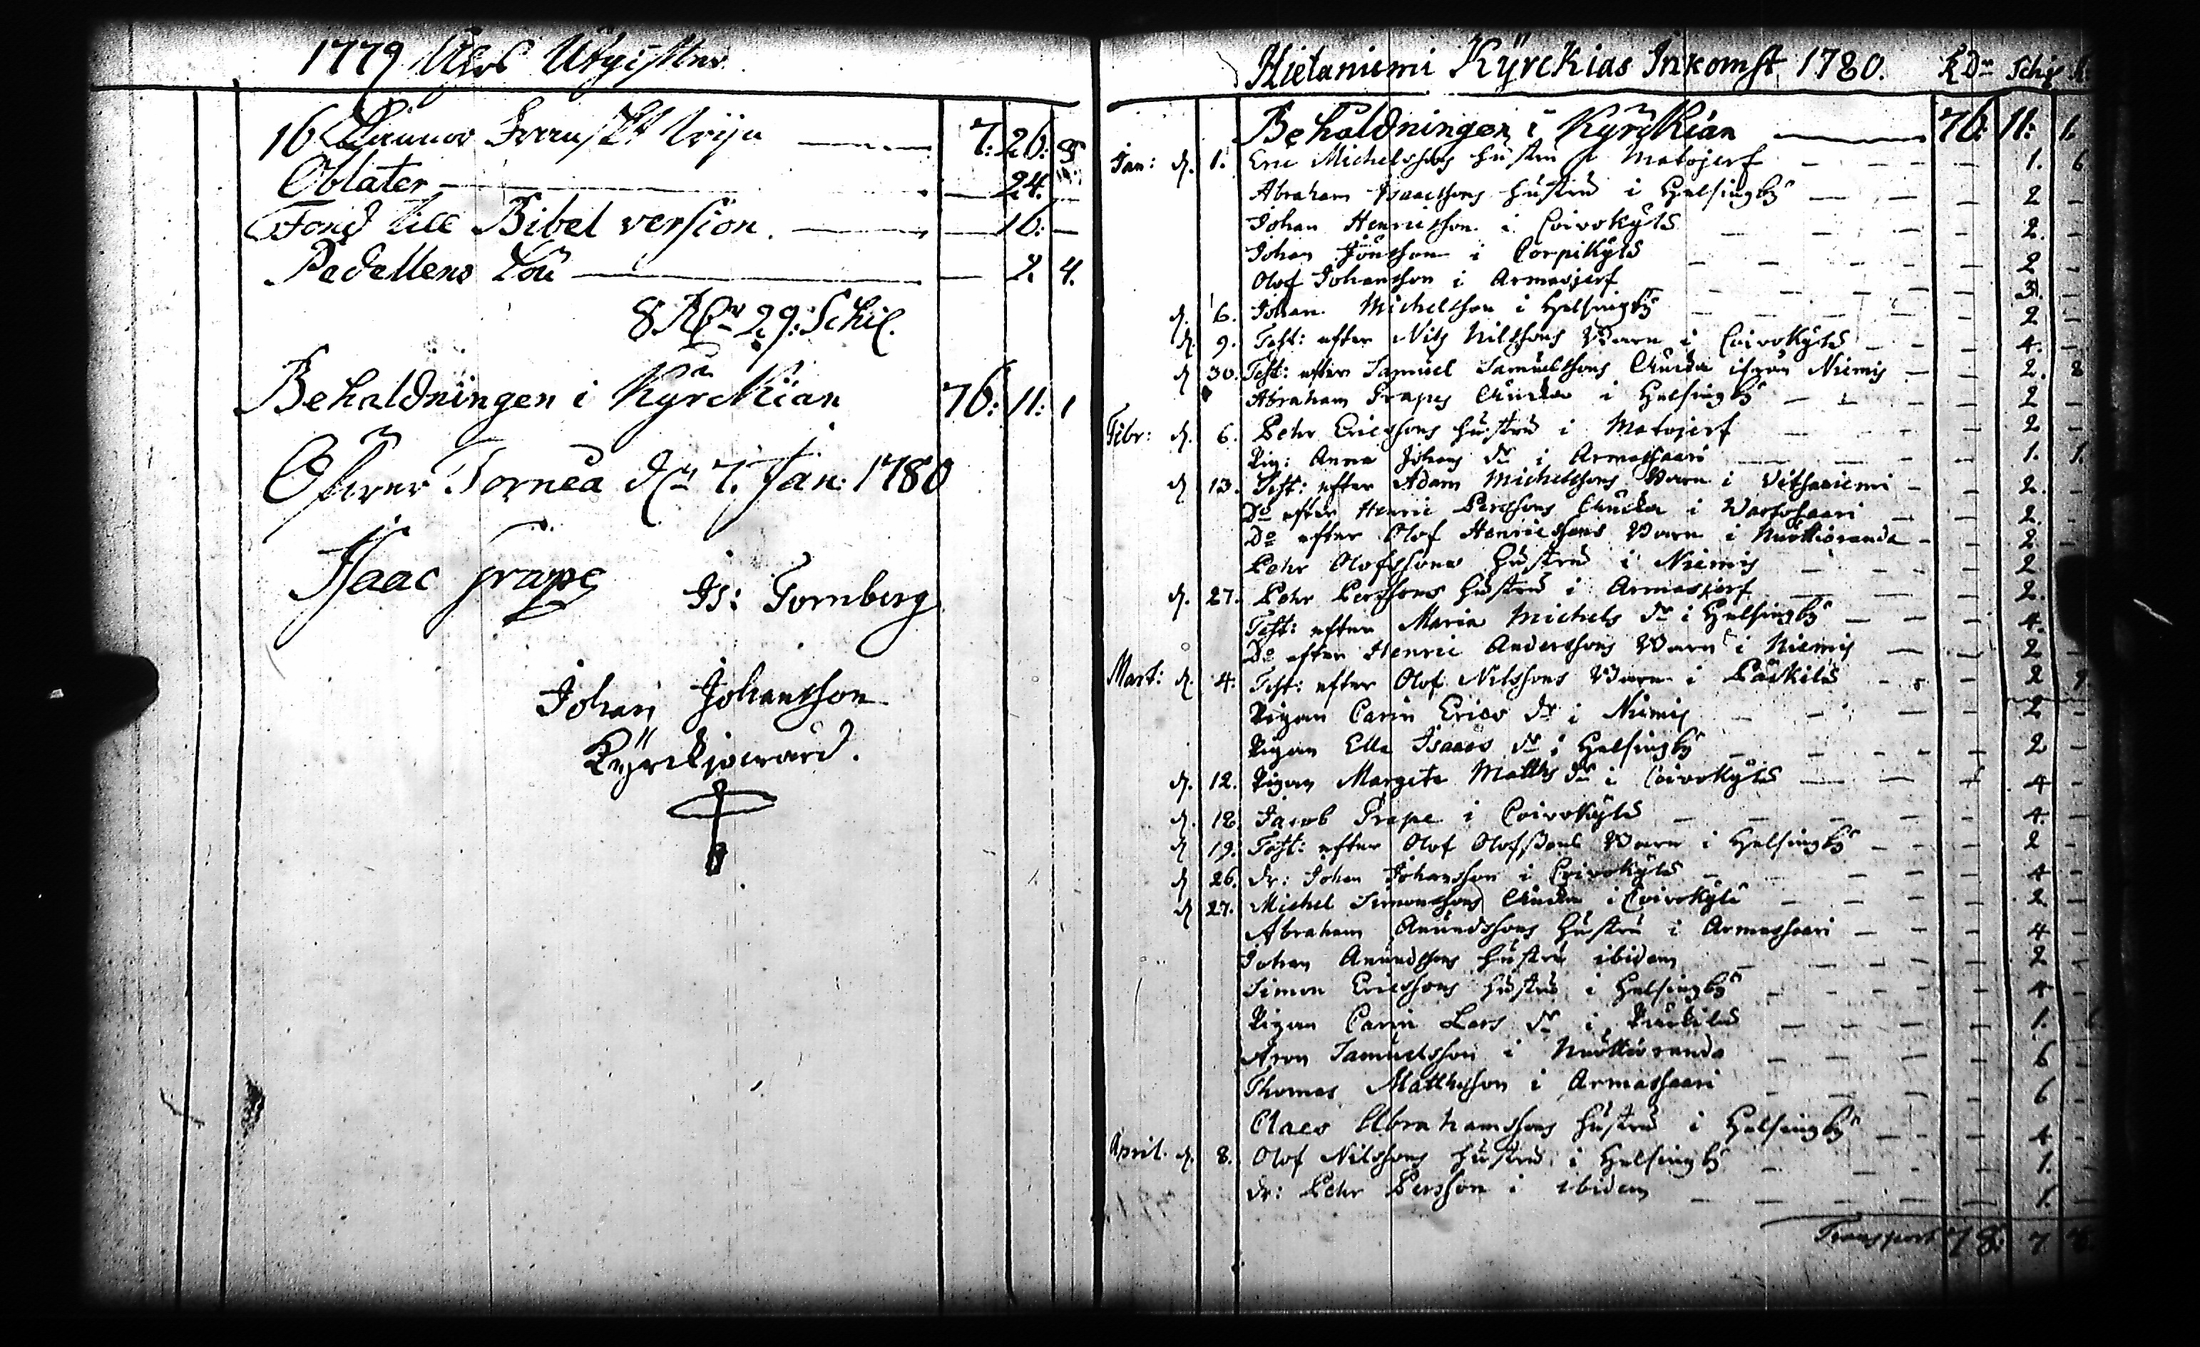 1779 Års Utgifter
16 Kannor Franskt 7: 26:
Oblater 24.
Fond till Bibel version. 16: —
Pedallens Lön 2. 4.
8 Rdr 29: Schil.
Behaldningen i Kyrckian 76: 11: 1
Öfwer Tornea d. 7. Jan: 1780
Isaac Grape Is: Fornberg
Johan Johansson
Kyrckjowärd.
Hietaniemi Kyrckias Inkomst 1780. RDr Schil
Behaldningen i Kyrckian 76: 11: 1.
Jan: d. 1. Eric Michelssons hustru i Matojerf 1. 6
Abraham Isaacssons hustru i Helsingby 2 -
Johan Henricsson i Coivokylä 2. -
Johan Jönsson i Corpikylä 2 -
Olof Johansson i Armasjerf 3. -
d. 6. Johan Michelsson i Helsingby 2 -
d. 9. Test: efter Nils Nilssons Barn i Coivokylä 4. -
d. 30. Test: efter Samuel Samuelssons Änckia ifrån Niemis 2. 8
Abraham Grapes Änckia i Helsingby 2 -
Febr: d. 6. Pehr Ericssons hustru i Matojerf 2 -
Pig: Anna Johans dr i Armassaari 1. 1.
d. 13. Test: efter Adam Michelssons Barn i Vitsaniemi 2. -
Do efter Henric Perssons Änckia i 2. -
Do efter Olof Henricssons Barn i Nuottioranda 2 -
Pehr Olofssons hustru i Niemis 2
d. 27. Pehr Perssons hustru i Armasjerf 2. -
Test: efter Maria Michels dr i Helsingby 4. -
Do efter Henric Anderssons Barn i Niemis 2 -
Mart: d. 4. Test: efter Olof Nilssons Barn i Päckilä 2
Pigan Carin Erics dr i Niemis 2 -
Pigan Ella Isaacs dr i Helsingby 2 -
d. 12. Pigan Margeta Matths dr i Coivokylä 4 -
d. 18. Jacob Grape i Coivokylä 4 -
d. 19. Test: efter Olof Olofssons Barn i Helsingby 2 -
d. 26. dr: Johan Johansson i Coivokylä 4 -
d. 27. Michel Simonssons Änckia i Coivokylä 2 -
Abraham Anundssons hustru i Armassaari 4 -
Johan Anundssons hustru ibidem 2 -
Simon Ericssons hustru i Helsingby 4 -
Pigan Carin Lars dr i Päckilä 1.
Aron Samuelsson i Nuottioranda 6 -
Thomas Matthsson i Armassaari 6 -
Claes Abrahamssons hustru i Helsingby 4 -
April. d. 8. Olof Nilssons hustru i Helsingby 1. -
dr: Pehr Persson i ibidem 1. -
Transport 78: 7